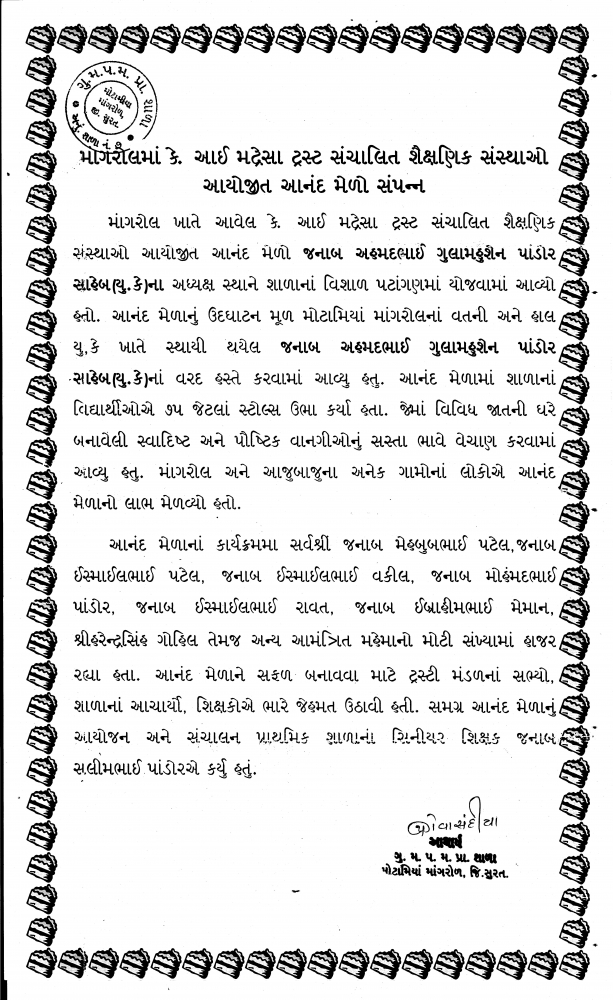 ગુ.મ.પ.મ. પ્રા. શાળા
મોટામીયા
માંગરોળ,
જી. સુરત.
માંગરોલમાં કે. આઈ મદ્રેસા ટ્રસ્ટ સંચાલિત શૈક્ષણિક સંસ્થાઓ
આયોજીત આનંદ મેળો સંપન્ન
માંગરોલ ખાતે આવેલ કે. આઈ મદ્રેસા ટ્રસ્ટ સંચાલિત શૈક્ષણિક
સંસ્થાઓ આયોજીત આનંદ મેળો જનાબ અહમદભાઈ ગુલામહુશેન પાંડોર
સાહેબ(યુ.કે)ના અધ્યક્ષ સ્થાને શાળાનાં વિશાળ પટાંગણમાં યોજવામાં આવ્યો
હતો. આનંદ મેળાનું ઉદઘાટન મૂળ મોટામિયાં માંગરોલનાં વતની અને હાલ
યુ,કે ખાતે સ્થાયી થયેલ જનાબ અહમદભાઈ ગુલામહુશેન પાંડોર
સાહેબ(યુ.કે)નાં વરદ હસ્તે કરવામાં આવ્યુ હતુ. આનંદ મેળામાં શાળાનાં
વિદ્યાર્થીઓએ ૭૫ જેટલાં સ્ટોલ્સ ઉભા કર્યા હતા. જેમાં વિવિધ જાતની ઘરે
બનાવેલી સ્વાદિષ્ટ અને પૌષ્ટિક વાનગીઓનું સસ્તા ભાવે વેચાણ કરવામાં
આવ્યુ હતુ. માંગરોલ અને આજુબાજુના અનેક ગામોનાં લોકોએ આનંદ
મેળાનો લાભ મેળવ્યો હતો.
આનંદ મેળાનાં કાર્યક્રમમા સર્વશ્રી જનાબ મેહબુબભાઈ પટેલ,જનાબ
ઈસ્માઈલભાઈ પટેલ, જનાબ ઈસ્માઈલભાઈ વકીલ, જનાબ મોહંમદભાઈ
પાંડોર, જનાબ ઈસ્માઈલભાઈ રાવત, જનાબ ઈબ્રાહીમભાઈ મેમાન,
શ્રીહરેન્દ્રસિંહ ગોહિલ તેમજ અન્ય આમંત્રિત મહેમાનો મોટી સંખ્યામાં હાજર
રહ્યા હતા. આનંદ મેળાને સફળ બનાવવા માટે ટ્રસ્ટી મંડળનાં સભ્યો,
શાળાનાં આચાર્યો, શિક્ષકોએ ભારે જેહમત ઉઠાવી હતી. સમગ્ર આનંદ મેળાનું
આયોજન અને સંચાલન પ્રાથમિક શાળાનાં સિનીયર શિક્ષક જનાબ
સલીમભાઈ પાંડોરએ કર્યુ હતું.
આચાર્ય
ગુ. મ. પ. મ. પ્રા. શાળા
મોટામિયાં માંગરોળ, જિ.સુરત.